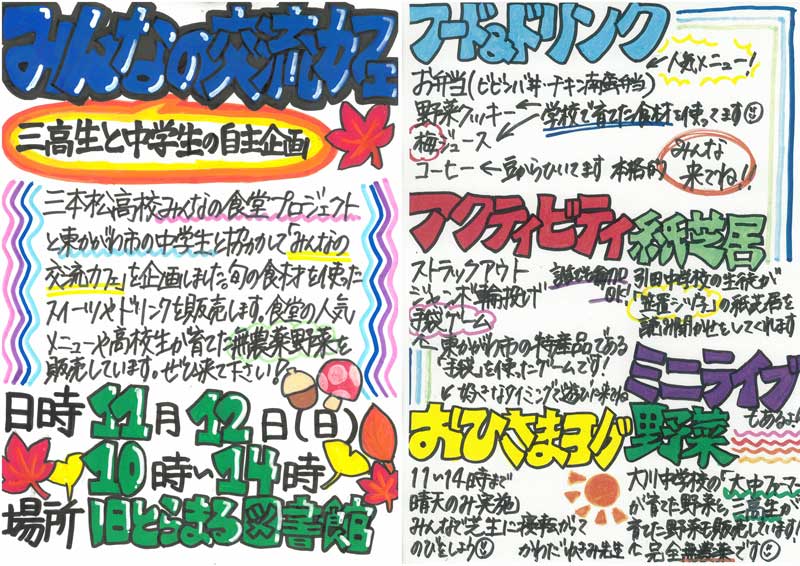 みんなの交流カフェ
三高生と中学生の自主企画
三本松高校みんなの食堂プロジェクト
と東かがわ市の中学生と協力して「みんなの
交流カフェ」を企画しました。旬の食材を使った
スイーツやドリンクを販売します。食堂の人気
メニューや高校生が育てた無農薬野菜を
販売しています。ぜひ来て下さい!
日時 11月12日(日)
10時~14時
場所 旧とらまる図書館
フード&ドリンク
お弁当(ビビンバ丼・チキン南蛮弁当)
人気メニュー!
野菜クッキー ← 学校で育てた食材を使ってます
梅ジュース
コーヒー ← 豆からひいてます 本格的
みんな
来てね!!
アクティビティ
ストラックアウト
ジャンボ輪投げ
手袋ゲーム
東かがわ市の特産品である
「手袋」を使ったゲームです!
好きなタイミングで遊びに来てね
紙芝居
引田中学校の生徒が
の紙芝居を
読み聞かせをしてくれます
ミニライブ
もあるよ!
おひさまヨガ
11~14時まで
晴天のみ実施
みんなで芝生に寝転がって
のびをしよう
かわだゆきみ先生
野菜
大川中学校の「大中ファーマー」
が育てた野菜と、三高生が
育てた野菜を販売しています!
完全無農薬です